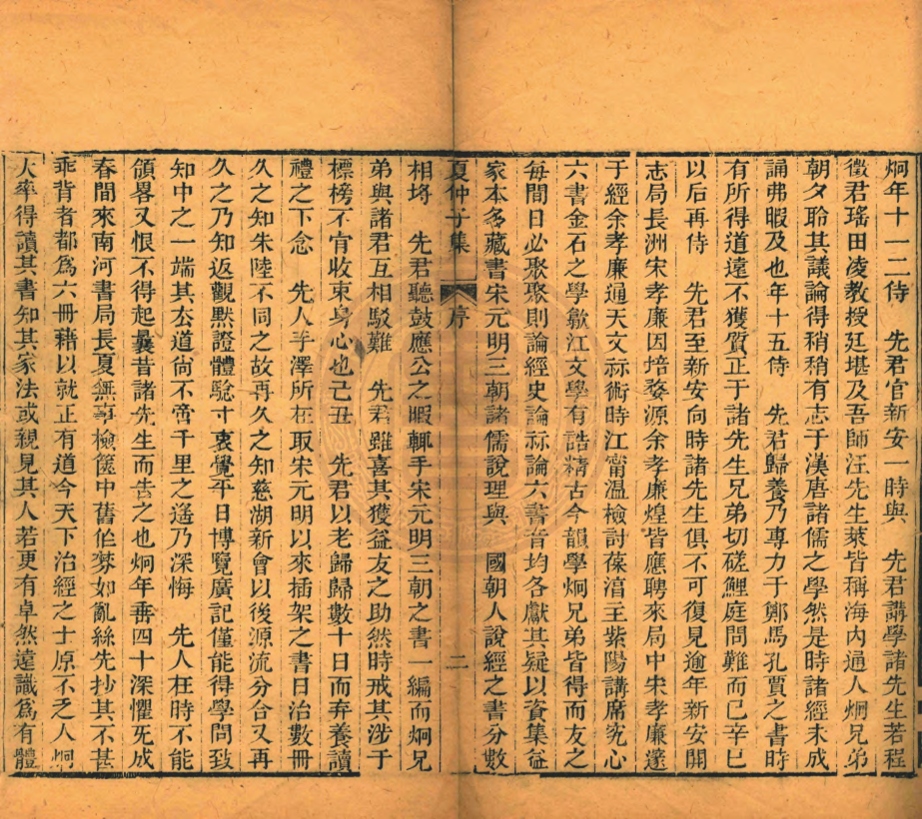 炯年十一二侍　先君官新安一時與　先君講學諸先生若程
徵君瑤田凌教授廷堪及吾師汪先生萊皆稱海內通人炯兄弟
朝夕聆其議論得稍稍有志于漢唐諸儒之學然是時諸經未成
誦弗暇及也年十五侍　先君歸養乃專力于鄭馬孔賈之書時
有所得道遠不獲質正于諸先生兄弟切磋鯉庭問難而已辛巳
以后再侍　先君至新安向時諸先生俱不可復見逾年新安開
志局長洲宋孝廉因培婺源余孝廉煌皆應聘來局中宋孝廉邃
于經余孝廉通天文祘術時江甯溫檢討葆淳主紫陽講席究心
六書金石之學歙江文學有誥精古今韻學炯兄弟皆得而友之
每間日必聚聚則論經史論祘論六書音均各獻其疑以資集益
家本多藏書宋元明三朝諸儒說理與　國朝人說經之書分數
夏仲子集　序　二
相埒　先君聽鼓應公之暇輒手宋元明三朝之書一編而炯兄
弟與諸君互相駁難　先君雖喜其獲益友之助然時戒其涉于
標榜不肎收束身心也己丑　先君以老歸歸數十日而弃養讀
禮之下念　先人手澤所在取宋元明以來插架之書日治數冊
久之知朱陸不同之故再久之知慈湖新會以後源流分合又再
久之乃知返觀默證體驗寸衷覺平日博覽廣記僅能得學問致
知中之一端其去道尙不啻千里之遙乃深悔　先人在時不能
領畧又恨不得起曩昔諸先生而告之也炯年垂四十深懼死成
春間來南河書局長夏無事檢篋中舊作棼如亂絲先抄其不甚
乖背者都為六冊藉以就正有道今天下治經之士原不乏人炯
大率得讀其書知其家法或親見其人若更有卓然遠識為有體